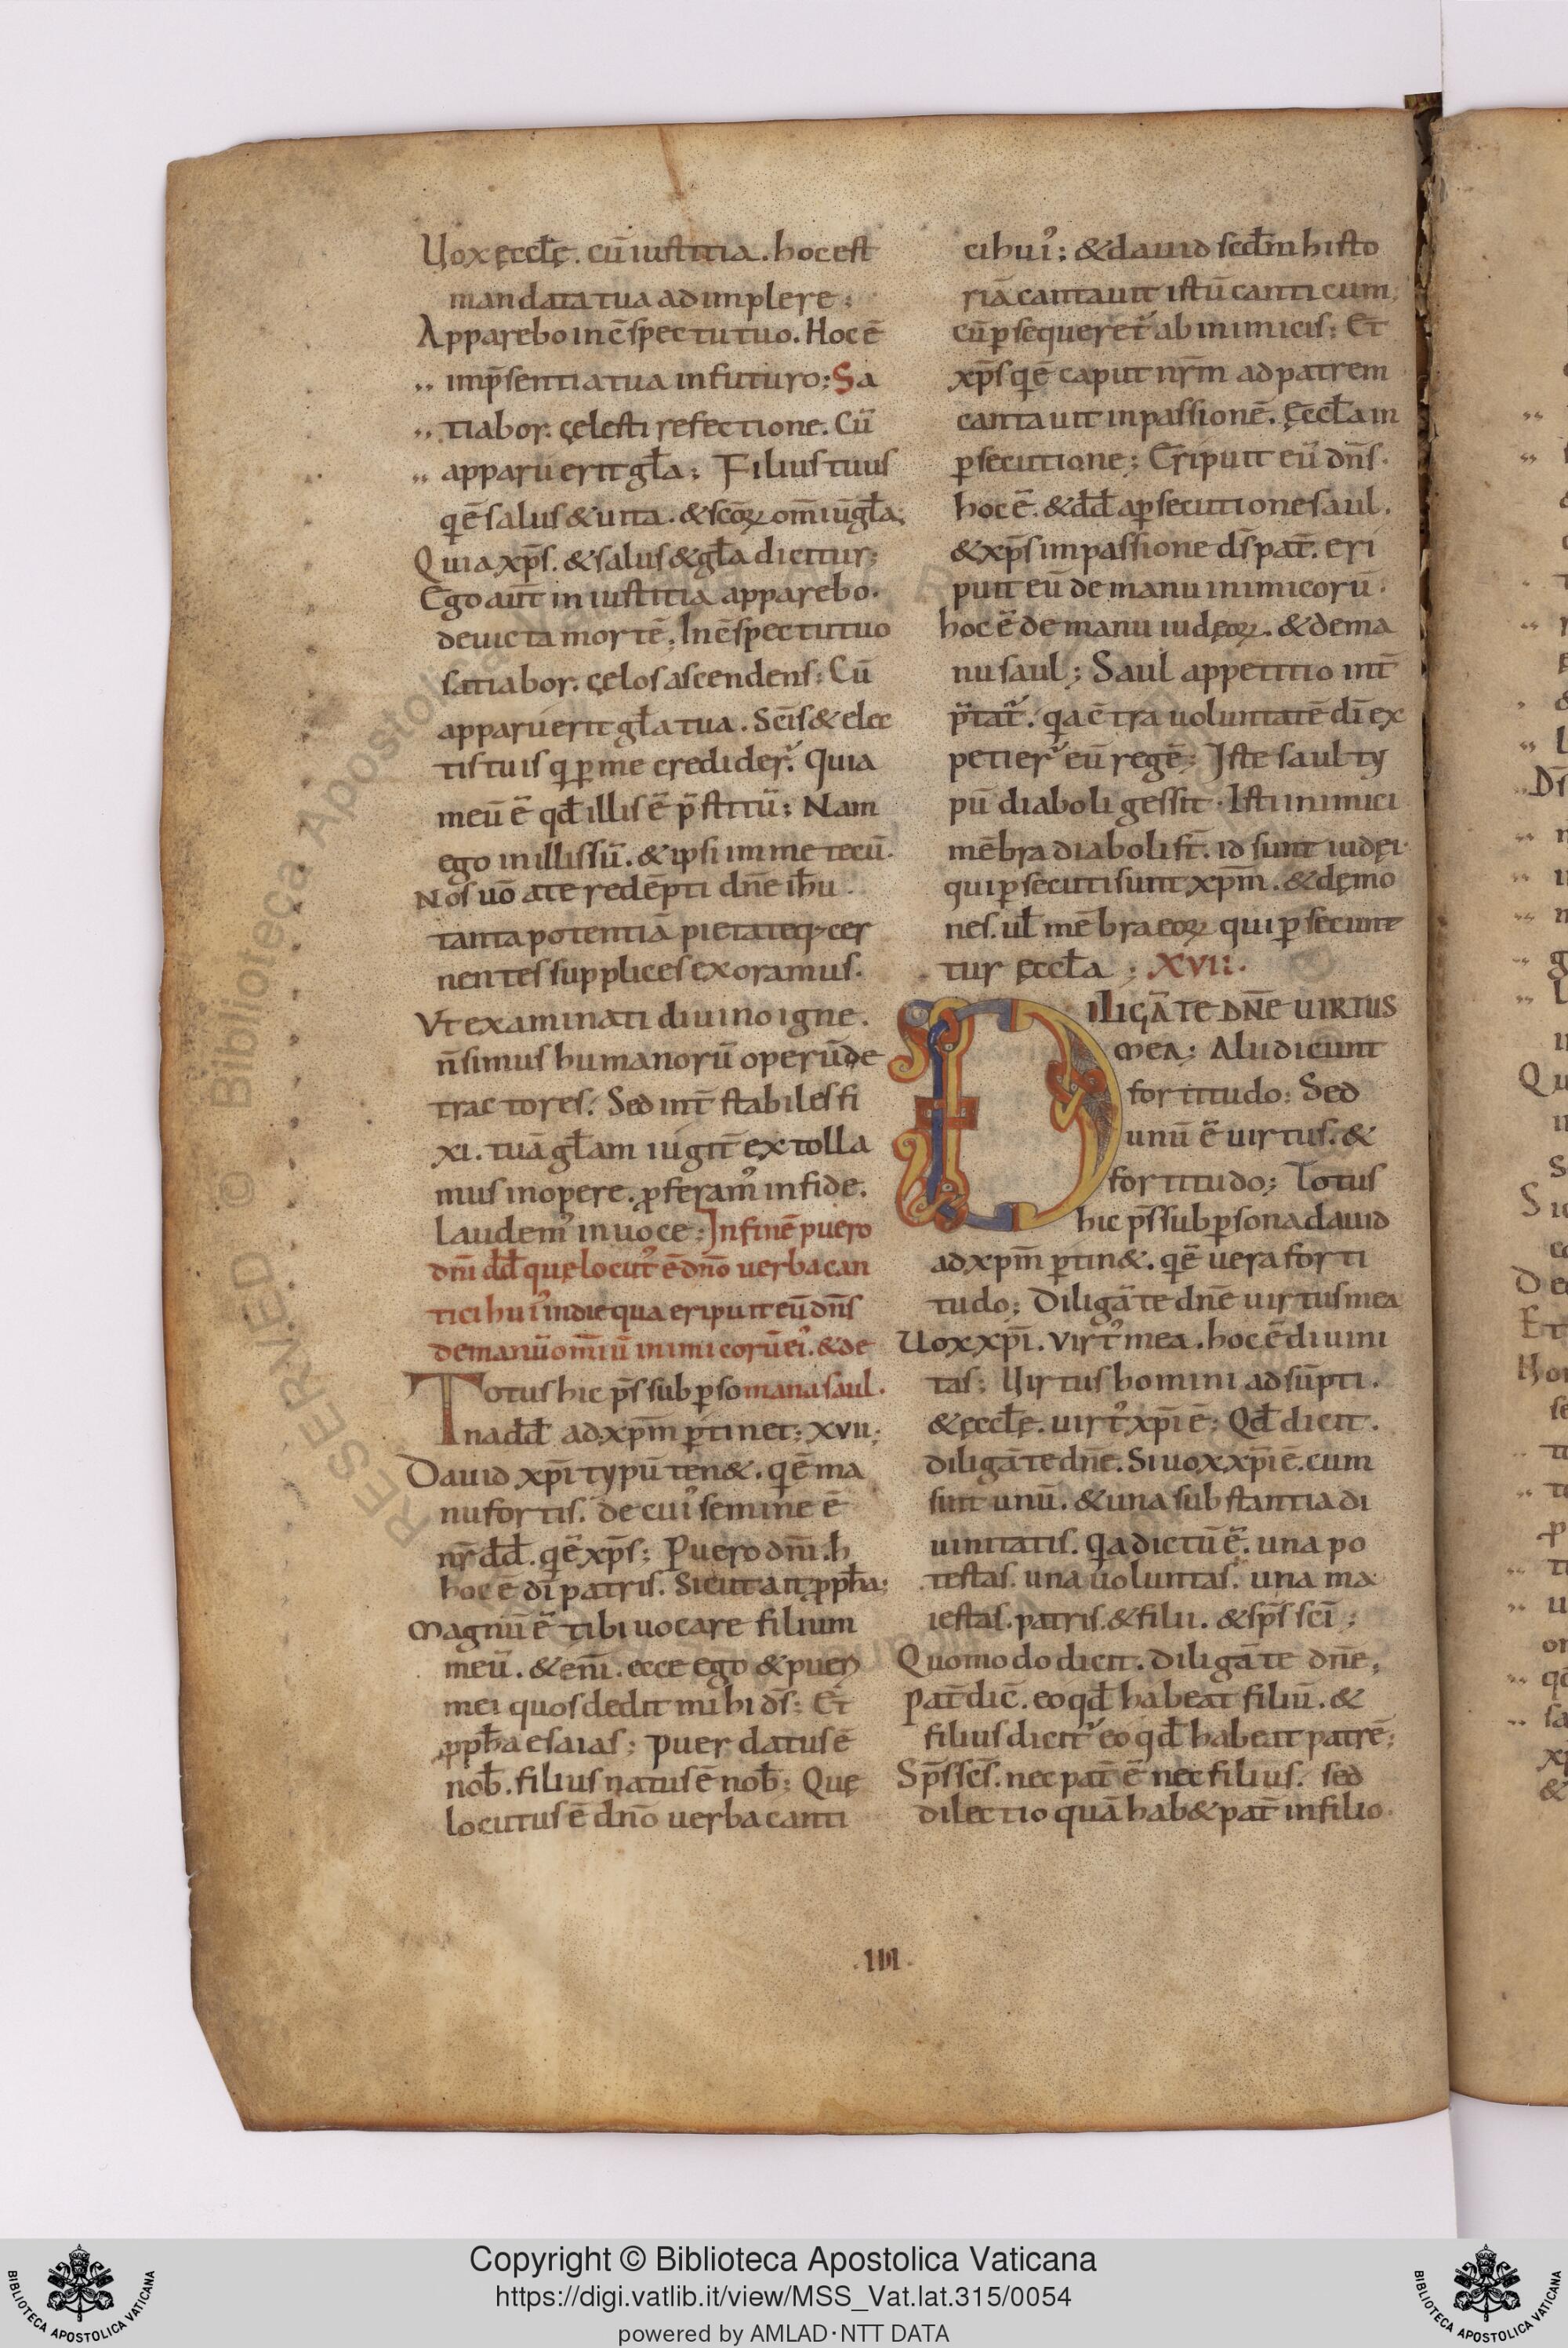 Uox ęccl̄ę. cū iustitia. hoc est
mandata tua adimplere;
Apparebo in c̄spectu tuo. Hoc ē
in p̄sentia tua in futuro; Sa
tiabor. cęlesti refectione. Cū
apparuerit gl̄a; Filius tuus
q ē salus & uita. & scōꝝ om̄iū gl̄a;
Quia xp̄s. & salus & gl̄a dicitur;
Ego aut̄ in iustitia apparebo.
deuicta mortē. In c̄spectu tuo
satiabor. cęlos ascendens; Cū
apparuerit gl̄a tua. Sc̄is & elec
tis tuis qi ꝑ me crediderᷣ. Quia
meū ē qd̄ illis ē p̄stitū; Nam
ego in illis sū. & ipsi in me tecū.
Nos uō a te redēpti dn̄e ih̄u.
tanta potentiā pietateq; cer
nentes supplices exoramus.
Vt examinati diuino igne.
n̄ simus humanorū operū de
tractores. Sed int̄ stabiles fi
xi. tuā gl̄am iugit̄ extolla
mus in opere. ꝓferam᾽ in fide.
Laudem᾽ in uoce; In finē puero
dn̄i dd̄ quę locut᾽ ē dn̄o uerba can
tici hui᾽ in die qua eripuit eū dn̄s
de manu om̄iū inimicorū ei᾽. & de
Totus hic ps̄ sub ꝑso manu saul.
na dd̄ ad xp̄m ꝑtinet; XVII;
Dauid xp̄i typū ten&. q ē ma
nu fortis. de cui᾽ semine ē
nr̄ dd̄. q ē xp̄s; Puero dn̄i. h̄
hoc ē dī patris. Sicut ait ꝓph̄a;
Magnū ē tibi uocare filium
meū. & eni̅. ecce ego & pueri
mei quos dedit mihi ds̄; Et
ꝓph̄a esaias; Puer datus ē
nob̄. filius natus ē nob̄; Quę
locutus ē dn̄o uerba canti
ci hui᾽; & dauid scd̄m histo
riā cantauit istū canticum;
cū ꝑsequeretᷣ ab inimicis; Et
xp̄s q ē caput nr̄m ad patrem
cantauit in passionē. Ęccl̄a in
ꝑsecutione; Eripuit eū dn̄s.
hoc ē. & dd̄ a ꝑsecutione saul.
& xp̄s in passione ds̄ pat̄. eri
puit eū de manu inimicorū.
hoc ē de manu iudęoꝝ. & de ma
nu saul; Saul appetitio int̄
p̄tatᷣ. q a c̄tra uoluntatē dī ex
petierᷣ eū regē; Iste saul ty
pū diaboli gessit. Isti inimici
mēbra diaboli st̄. id sunt iudęi.
qui ꝑsecuti sunt xpm̄. & dęmo
nes. ul̄ mēbra eoꝝ qui ꝑsecunt
tur ęccl̄a; XVII.
DILIGĀ TE DN̄E UIRTUS
mea; Alii dicunt
fortitudo; Sed
unū ē uirtus. &
fortitudo; Totus
hic ps̄ sub ꝑsona dauid
ad xpm̄ ꝑtin&. q ē uera forti
tudo; Diligā te dn̄e uirtus mea
Uox xp̄i. Virt᾽ mea. hoc ē diuini
tas; Uirtus homini adsūpti.
& ęccl̄ę. uirt᾽ xp̄i ē; Qd̄ dicit.
diligā te dn̄e. Si uox xp̄i ē. cum
sint unū. & una substantia di
uinitatis. qa dictū ē. una po
testas. una uoluntas. una ma
iestas. patris. & filii. & sp̄s sc̄i;
Quomodo dicit. Diligā te dn̄e.
Pat̄ dic̄. eo qd̄ habeat filiū. &
filius dicitᷣ eo qd̄ habeat patrē;
Sp̄s sc̄s. nec pat̄ ē nec filius. sed
dilectio quā hab& pat̄ in filio.
.IIII.
RESERVED © Biblioteca Apostolica Vaticana
Copyright © Biblioteca Apostolica Vaticana
https://digi.vatlib.it/view/MSS_Vat.lat.315/0054
powered by AMLAD·NTT DATA
BIBLIOTECA APOSTOLICA VATICANA
BIBLIOTECA APOSTOLICA VATICANA